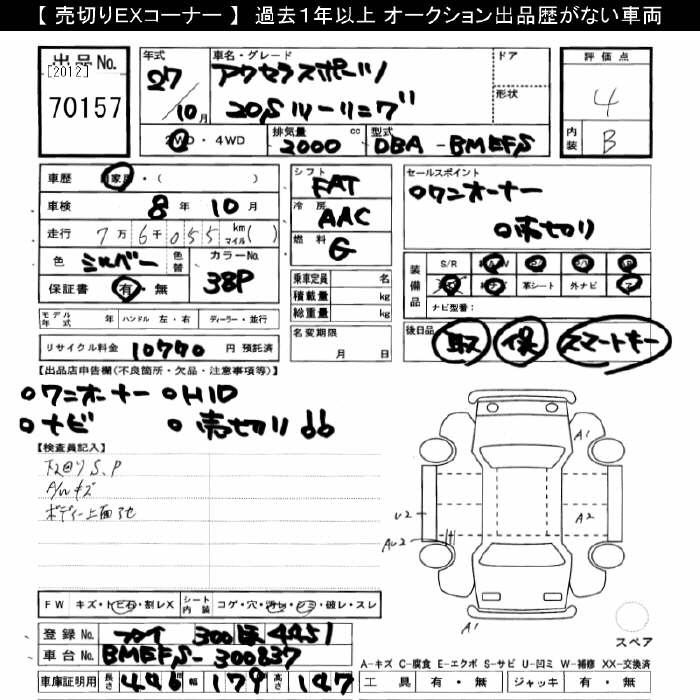 【 売切りEXコーナー 】 過去1年以上 オークション出品歴がない車両
出品No.
[2012]
70157
年式 27/10月
車名・グレード アクセラスポーツ
20S ツーリング
ドア
形状
評価点
4
内装 B
2WD・4WD
排気量 2000 cc
型式 DBA-BMEFS
車歴 自家用・( )
車検 8年 10月
走行 7万6千055 km マイル( )
色 シルバー 色替
カラーNo. 38P
保証書 有・無
シフト FAT
冷房 AAC
燃料 G
乗車定員 名
積載量 kg
総重量 kg
セールスポイント
○ワンオーナー
○売切り
装備品
S/R
革シート 外ナビ
ナビ型番：
モデル年式 年 ハンドル 左・右 ディーラー・並行
リサイクル料金 10770 円 預託済
名変期限 月 日
後日品 取 保 スマートキー
【出品店申告欄(不良箇所・欠品・注意事項等)】
○ワンオーナー ○HID
○ナビ ○売切り
【検査員記入】
A/Wキズ
ボディー上面
A1
U2
A2
A1
スペア
FW キズ・トビ石・割レX
シート内装 コゲ・穴・汚レ・シミ・破レ・スレ
登録No. 300 ほ 4451
車台No. BMEFS-300837
車庫証明用 長さ 446 幅 179 高さ 147
A-キズ C-腐食 E-エクボ S-サビ U-凹ミ W-補修 XX-交換済
工具 有・無 ジャッキ 有・無